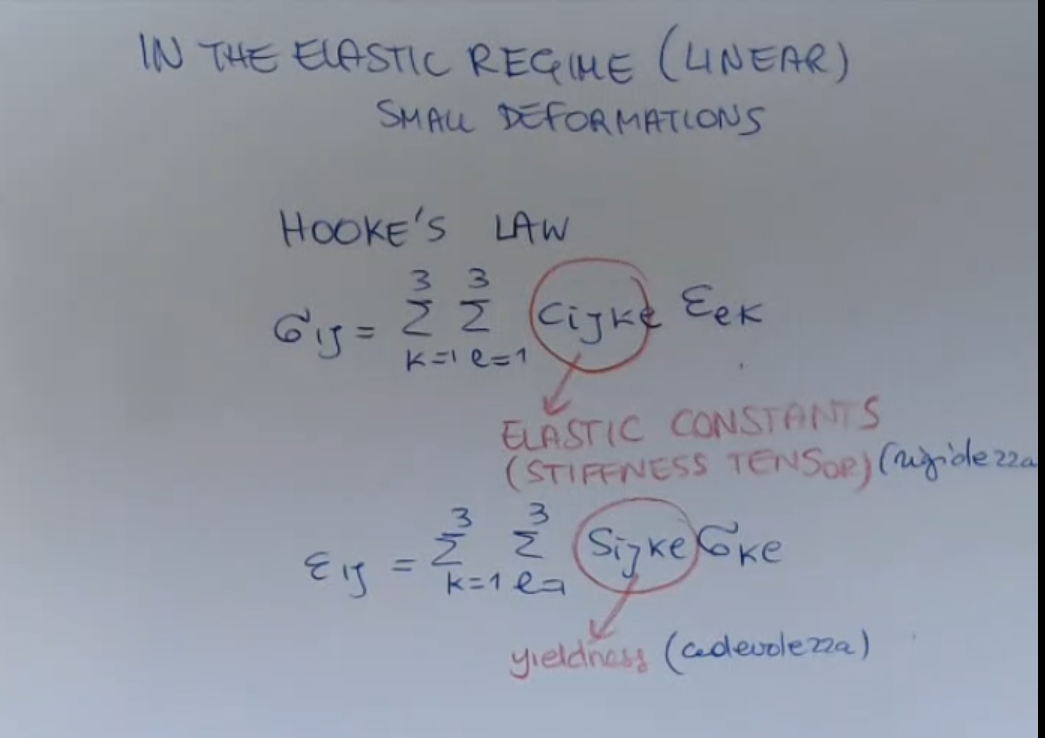 IN THE ELASTIC REGIME (LINEAR)
SMALL DEFORMATIONS
HOOKE'S LAW
σij = 3∑k=1 3∑l=1 Cijkl εlk
ELASTIC CONSTANTS
(STIFFNESS TENSOR) (rigidezza
εij = 3∑k=1 3∑l=1 Sijkl σkl
yieldness (cedevolezza)